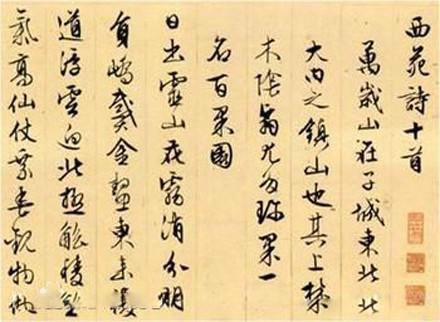 西苑詩十首
萬歲山在子城東北北
大内之鎮山也其上林
木陰翳尤多珍果一
名百果園
日出靈山花霧消分明
員嶠戴金鰲東來複
道浮雲迥北極觚稜王
氣高仙仗乘春觀物化